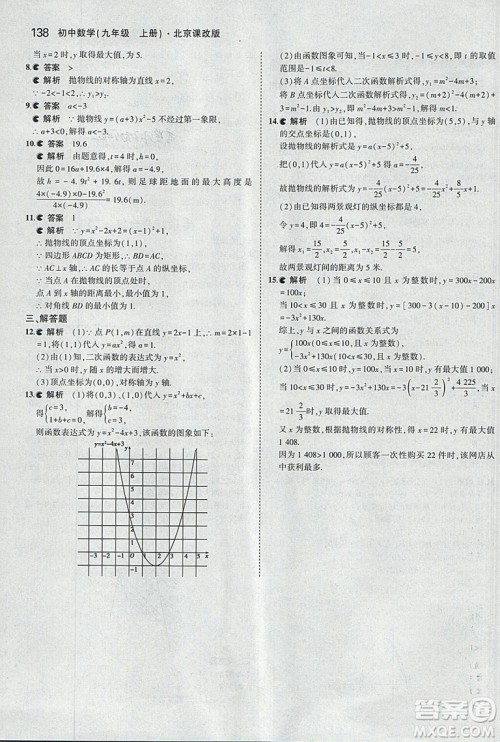 138 初中数学(九年级 上册)·北京课改版
当 s=x 时,y取得最大值,为 5.
8.答案 >
解析 抛物线的对称轴为直线 x=1,
∵-2<-1<2,∴y₁>y₂.
9.答案 a<-3
解析 ∵抛物线的开口向下,
∴a+3<0,∴a<-3.
10.答案 19.6
解析 由题意得,t=4 时,h=0,
因此 0=16a+19.6×4,解得 a=-4.9,
故 h=-4.9t²+19.6t,则足球距地面的最大高度是
4×(-4.9)×0-19.6²/4×(-4.9)=19.6(m).
11.答案 1
解析 ∵y=x²-2x+2=(x-1)²+1,
∴抛物线的顶点坐标为(1,1).
∵四边形 ABCD 为矩形,∴BD=AC.
∵点 A 在抛物线上运动,AC⊥x 轴,
∴当点 A 在抛物线顶点处时,AC 最小,最小值为 1,
∴对角线 BD 的最小值为 1.
三、解答题
12.解析 (1)∵点 P(1,m)在直线 y=2x-1 上,
∴m=2×1-1=1,将 P(1,1)代入 y=ax²得 a=1.
(2)由(1)知,二次函数的表达式为 y=x²,
∴当 x>0 时,y 随 x 的增大而增大.
(3)顶点坐标为(0,0),对称轴为 y 轴.
13.解析 (1)将(0,3),(1,0)代入 y=x²+bx+c,
得{c=3, 1+b+c=0,解得{b=-4, c=3,
则函数表达式为 y=x²-4x+3,该函数的图象如下:
y=x²-4x+3
7
6
5
4
3
2
1
-3 -2 -1 1 2 3 4 5 x
(2)由函数图象可知,当函数值 y>0 时,自变量 x 的取值
范围是 x<1 或 x>3.
(3)将 A 点坐标代入二次函数解析式得 y₁=m²-4m+3;
将 B 点坐标代入二次函数解析式得 y₂=(m+2)²-4(m+2)+3=m²-1.
14.解析 (1)由已知得,抛物线的顶点为(5,5),与 y 轴
的交点坐标是(0,1),
设抛物线的解析式为 y=a(x-5)²+5,
把(0,1)代入 y=a(x-5)²+5,得 a=-4/25.
故抛物线的解析式为 y=-4/25(x-5)²+5(0≤x≤10).
(2)由已知得两景观灯的纵坐标都是 4,
令 y=4,得 4=-4/25(x-5)²+5,
解得 x₁=15/2,x₂=5/2,∵15/2-5/2=5,
故两景观灯间的距离为 5 米.
15.解析 (1)当 0≤x≤10 且 x 为整数时,y=300x-200x=100x;
当 10<x≤30 且 x 为整数时,y=[300-3(x-10)-200]x=-3x²+130x.
综上,y 与 x 之间的函数关系式为
y={100x(0≤x≤10且x为整数), -3x²+130x(10<x≤30且x为整数).
(2)当 0≤x≤10 时,y 的最大值为 1 000,
当 10<x≤30 时,y=-3x²+130x=-3(x-21 2/3)²+4 225/3,
当 x=21 2/3 时,y 取得最大值.
又 x 为整数,根据抛物线的对称性,得 x=22 时,y 有最大值 1 408.
因为 1 408>1 000,所以顾客一次购买 22 件时,该网店从
中获利最多.